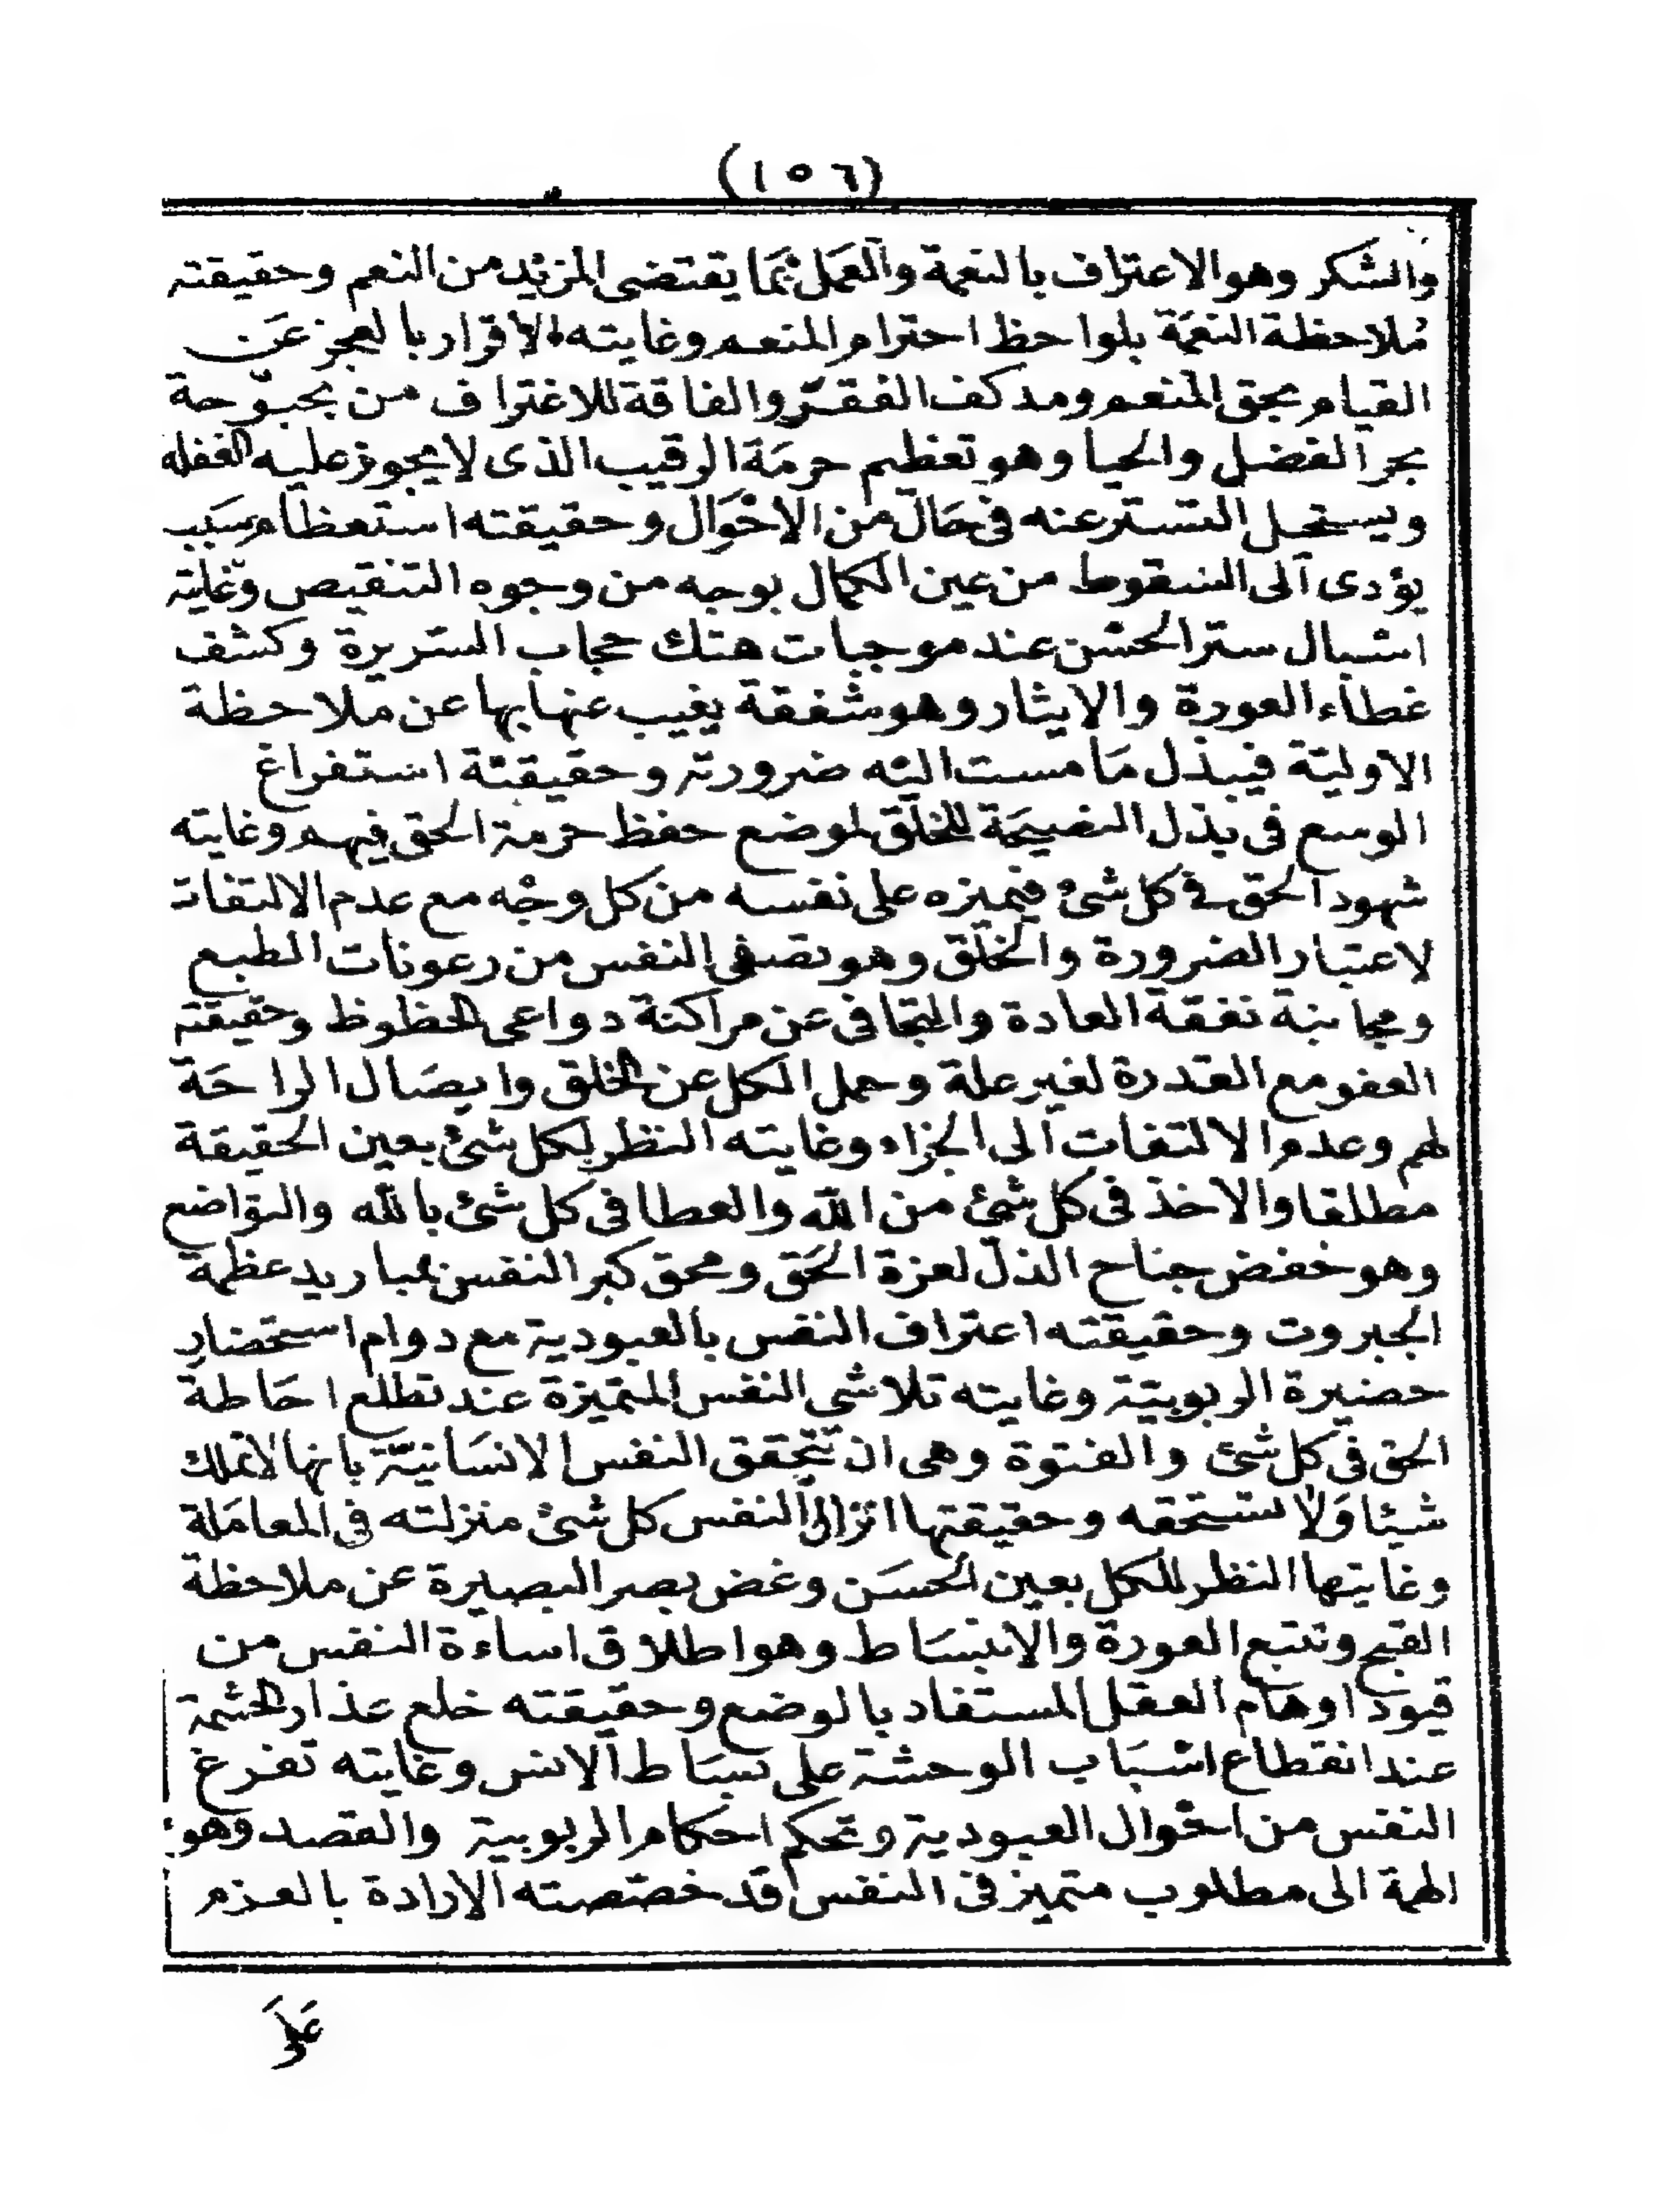 (١٥٦)
والشكر وهو الاعتراف بالنعمة والعمل بما يقتضى المزيد من النعم وحقيقته
ملاحظة النعمة بلواحظ احترام المنعم وغايته الاقرار بالعجز عن
القيام بحق المنعم ومد كف الفقر والفاقة للاغتراف من بحبوحة
بحر الفضل والحيا وهو تعظيم حرمة الرقيب الذى لا يجوز عليه الغفله
ويستحيل التستر عنه فى حال من الاحوال وحقيقته استعظام سبب
يؤدى الى السقوط من عين الكمال بوجه من وجوه التنقيص وغايته
اسبال ستر الحسن عند موجبات هتك حجاب السريرة وكشف
غطاء العورة والايثار وهو شفقة يغيب عنها بها عن ملاحظة
الاولية فيبذل ما مست اليه ضرورته وحقيقتة استفراغ
الوسع فى بذل النصيحة للخلق لموضع حفظ حرمة الحق فيهم وغايته
شهود الحق فى كل شئ فيميزه على نفسه من كل وجه مع عدم الالتفات
لاعتبار الضرورة والخلق وهو تصفى النفس من رعونات الطبع
ومجانبة نفقة العادة والتجافى عن مراكنة دواعى الحظوظ وحقيقته
العفو مع القدرة لغير علة وحمل الكل عن الخلق وايصال الراحة
لهم وعدم الالتفات الى الجزاء وغايته النظر لكل شئ بعين الحقيقة
مطلقا والاخذ فى كل شئ من الله والعطا فى كل شئ بالله والتواضع
وهو خفض جناح الذل لعزة الحق ومحق كبر النفس بمباريد عظمة
الجبروت وحقيقته اعتراف النفس بالعبودية مع دوام استحضار
حضيرة الربوبية وغايته تلاشى النفس المتميزة عند تطلع احاطة
الحق فى كل شئ والفتوة وهى ان تتحقق النفس الانسانية بانها لا تملك
شيئا ولا تستحقه وحقيقتها انزال النفس كل شئ منزلته فى المعاملة
وغايتها النظر للكل بعين الحسن وغض بصر البصيرة عن ملاحظة
القبح وتتبع العورة والانبساط وهو اطلاق اساءة النفس من
قيود اوهام العقل المستفاد بالوضع وحقيقته خلع عذار الحشمة
عند انقطاع اسباب الوحشة على بساط الانس وغايته تفرغ
النفس من احوال العبودية وتحكم احكام الربوبية والقصد وهو
الهمة الى مطلوب متميز فى النفس قد خصصته الارادة بالعزم